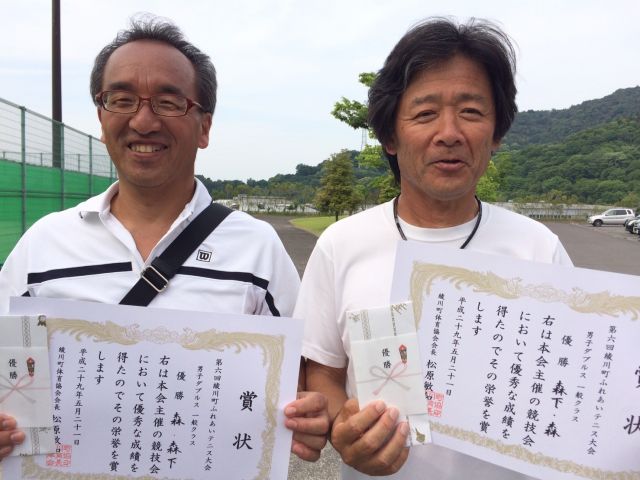 賞状
第六回綾川町ふれあいテニス大会
男子ダブルス 一般クラス
優勝 森・森下
右は本会主催の競技会
において優秀な成績を
得たのでその栄誉を賞
します
平成二十九年五月二十一日
綾川町体育協会会長 松原
優勝
W
賞状
第六回綾川町ふれあいテニス大会
男子ダブルス 一般クラス
優勝 森下・森
右は本会主催の競技会
において優秀な成績を
得たのでその栄誉を賞
します
平成二十九年五月二十一日
綾川町体育協会会長 松原
優勝